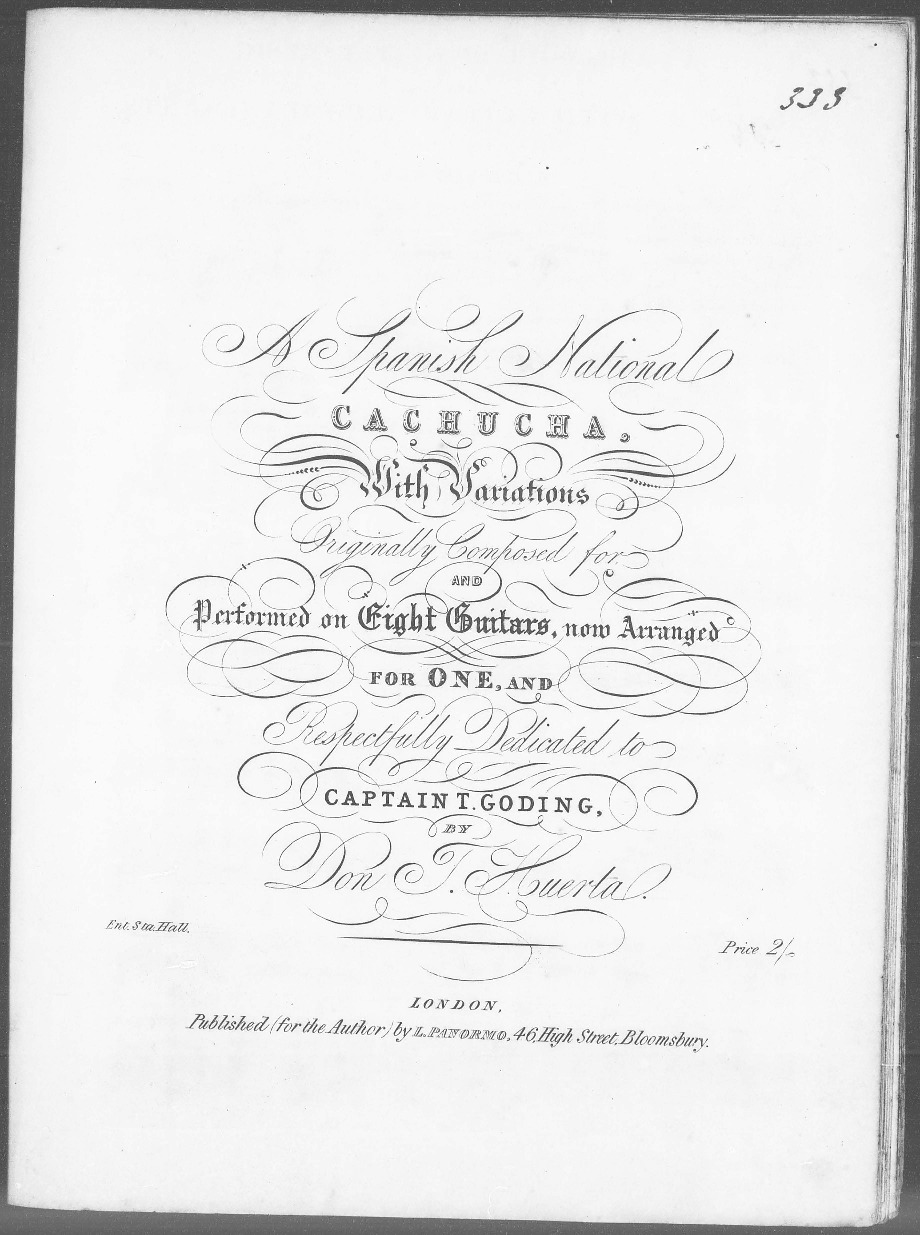 333
A Spanish National
CACHUCHA,
With Variations
Originally Composed for
AND
Performed on Eight Guitars, now Arranged
FOR ONE, AND
Respectfully Dedicated to
CAPTAIN T. GODING,
BY
Don T. Huerta.
Ent. Sta. Hall.
Price 2/-
LONDON,
Published (for the Author) by L. PANORMO, 46, High Street, Bloomsbury.